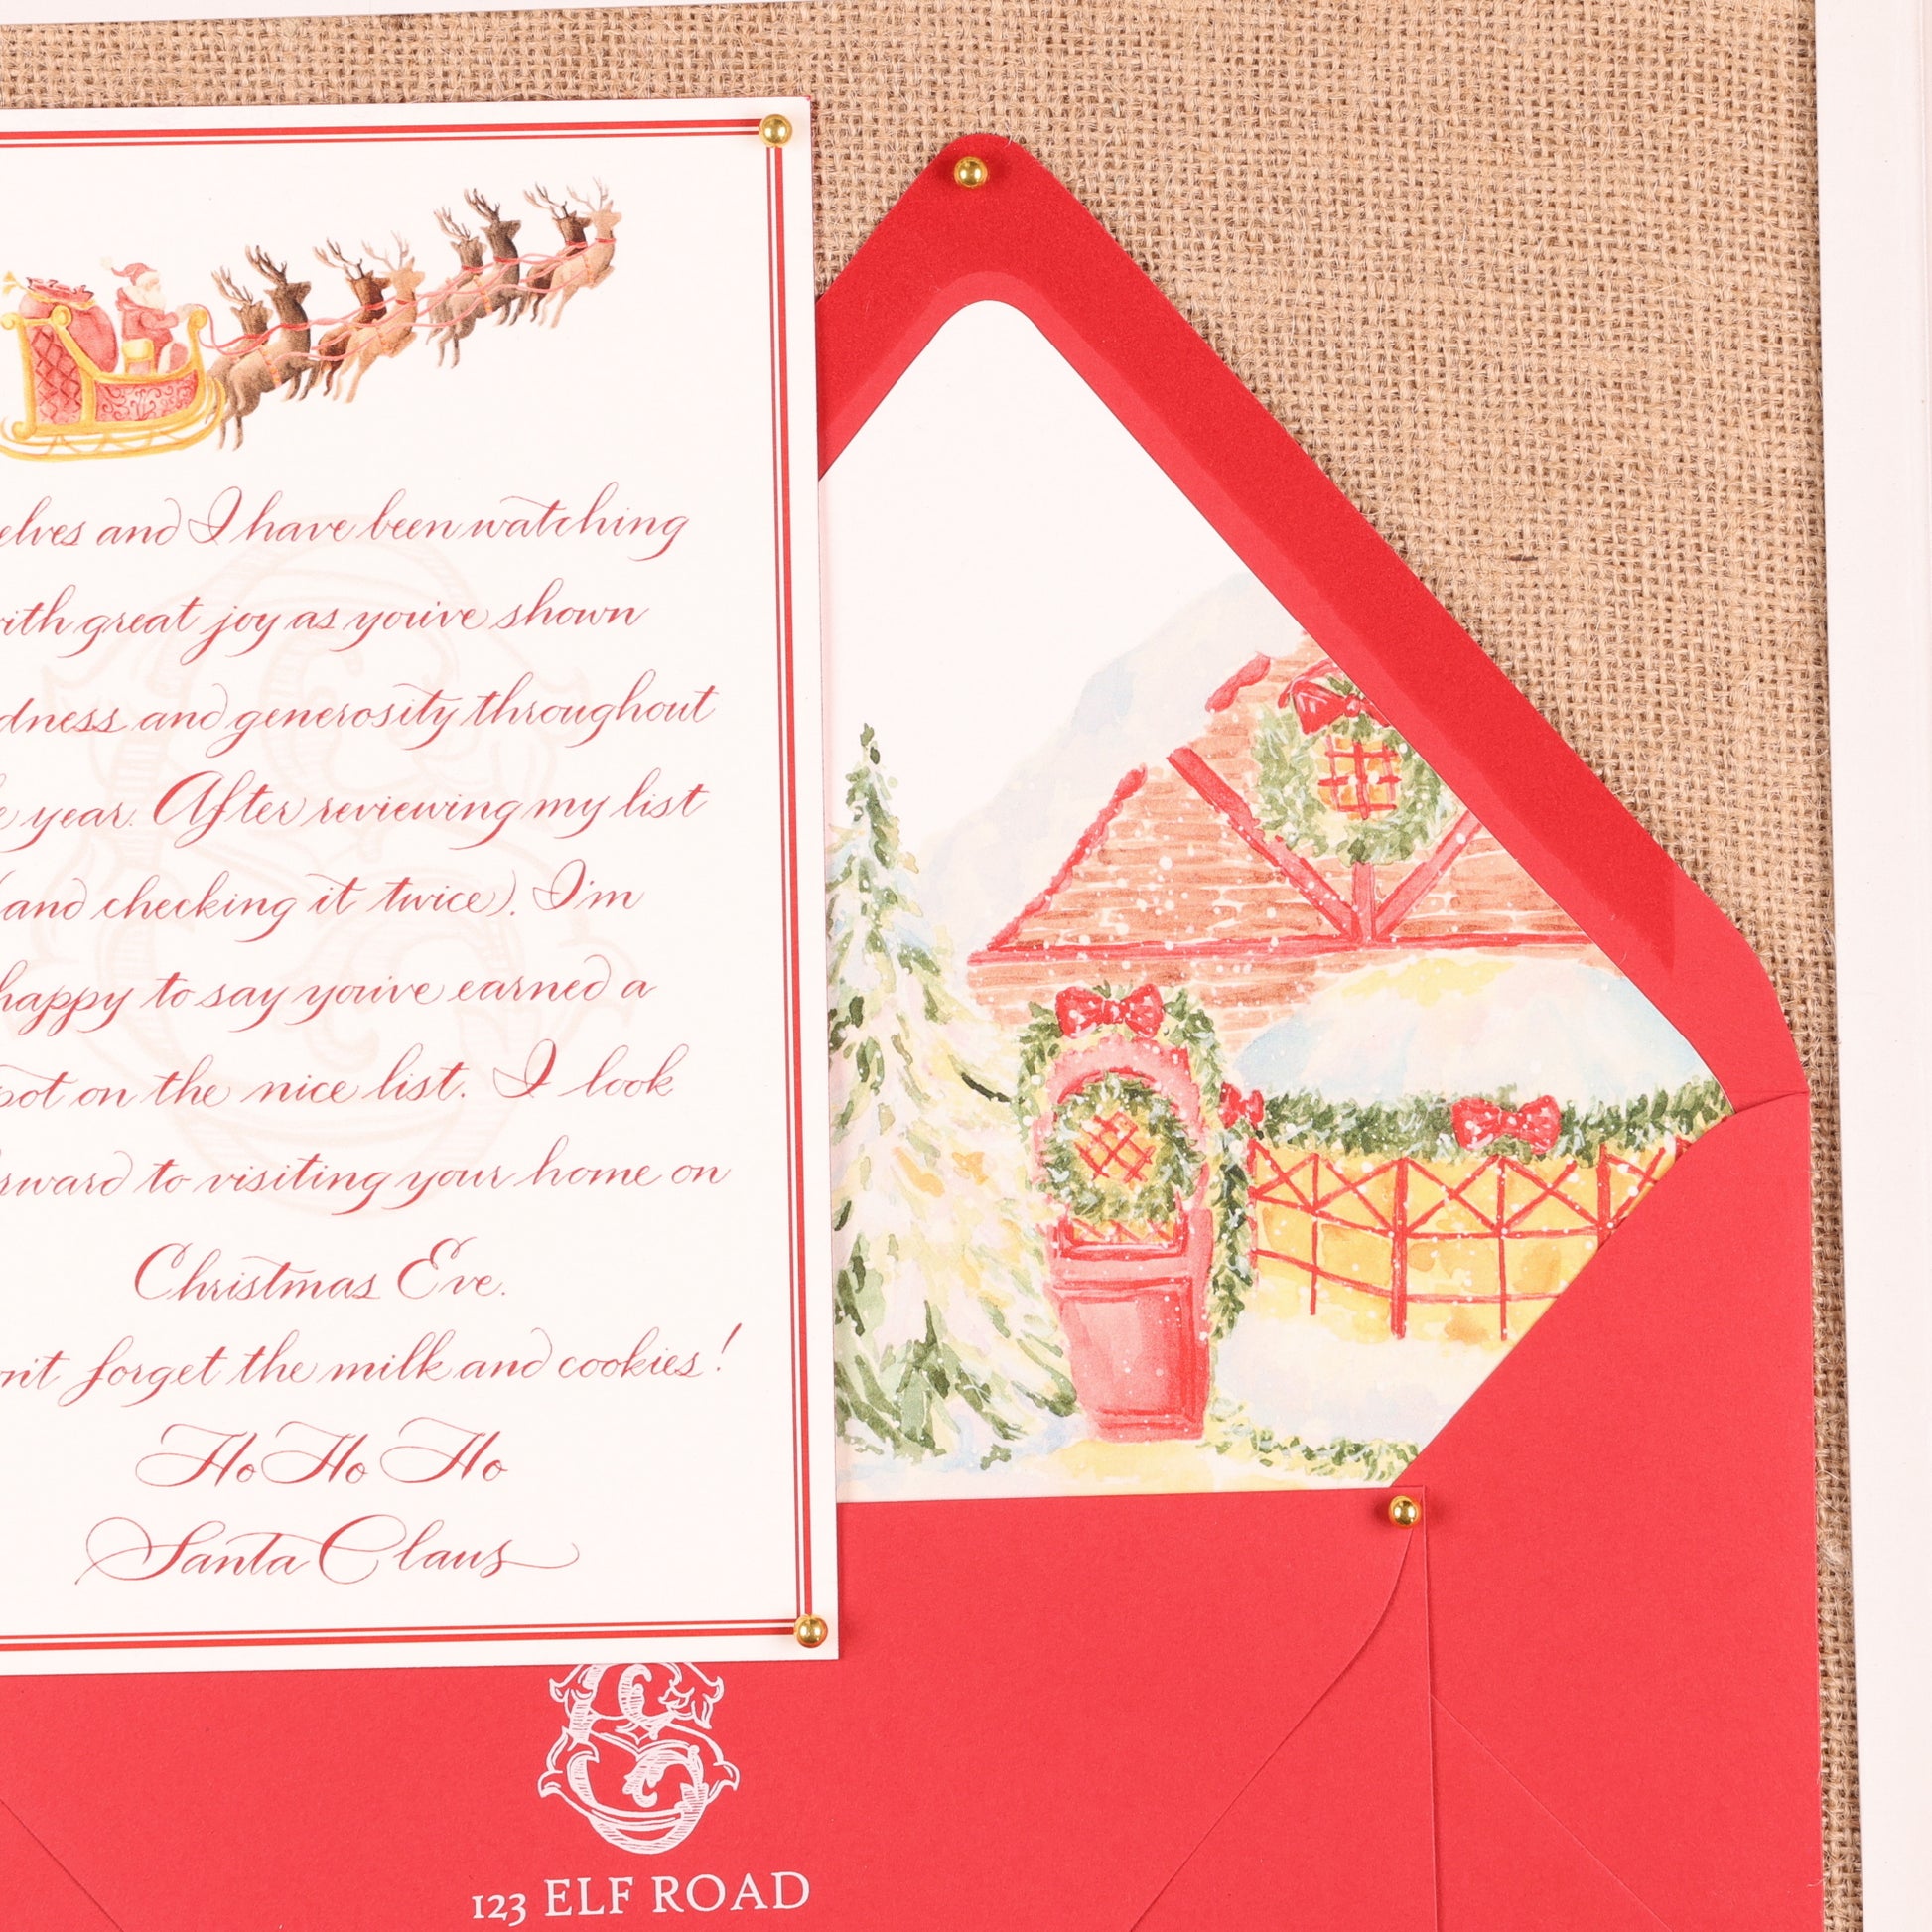 elves and I have been watching
with great joy as you've shown
dness and generosity throughout
e year. After reviewing my list
(and checking it twice), I'm
happy to say you've earned a
pot on the nice list. I look
rward to visiting your home on
Christmas Eve.
n't forget the milk and cookies!
Ho Ho Ho
Santa Claus
123 ELF ROAD